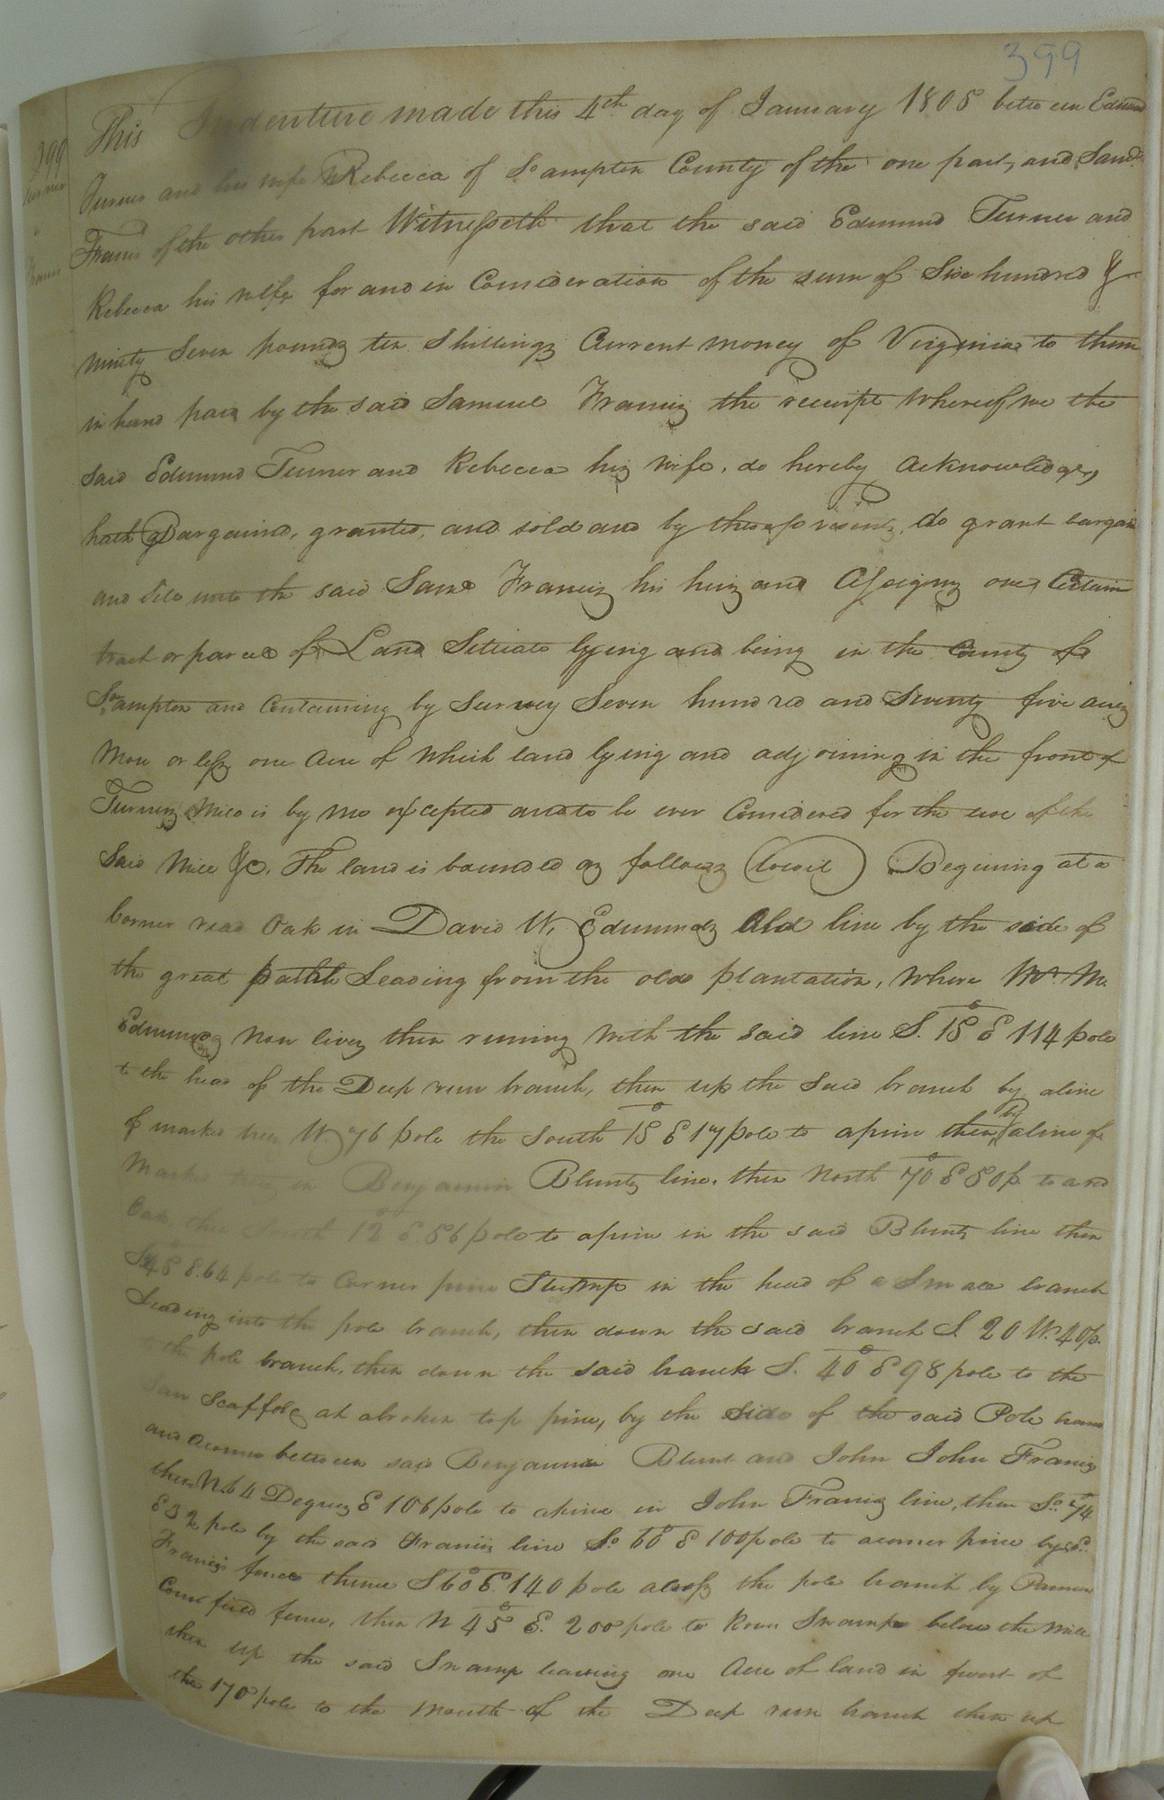 399
399
Turner
Francis
This Indenture made this 4th day of January 1805 between Edmund
Turner and his wife Rebecca of So.ampton County of the one part, and Saml.
Francis of the other part Witnesseth that the said Edmund Turner and
Rebecca his wife for and in Consideration of the sum of Six hundred &
ninety Seven pounds ten Shillings Current money of Virginia to them
in hand paid by the said Samuel Francis the receipt whereof we the
said Edmund Turner and Rebecca his wife, do hereby acknowledge,
hath Bargained, granted, and sold and by these presents, do grant bargain
and sell unto the said Saml Francis his heirs and Assigns one Certain
tract or parcel of Land Situate lying and being in the County of
So.ampton and Containing by Survey Seven hundred and Seventy five acres
More or less one Acre of which land lying and adjoining in the front of
Turners Mill is by me excepted and to be ever Considered for the use of the
Said Mill &c. The land is bounded as follows (towit) Begining at a
Corner read Oak in David W. Edmunds Old line by the side of
the great path Leading from the old plantation, where Wm. M.
Edmunds now lives then runing with the said line S. 15° E 114 pole
to the head of the Deep run branch, then up the said branch by a line
of marked trees W 76 pole the South 15° E 17 pole to a pine then by a line of
Marked in Benjamin Blunts line, then North 70° E 50 p. to a red
Oak, then South 12° E 56 pole to a pine in the said Blunts line then
S 45 E. 64 pole to Corner pine Stump in the head of a Small branch
Leading into the pole branch, then down the said branch S. 20 W. 40 p.
to the pole branch, then down the said branch S. 40° E 98 pole to the
Saw Scaffold at a broken top pine, by the side of the said Pole branch
and a corner between said Benjamin Blunt and John John Francis
then N. 64 Degrees E 106 pole to a pine in John Francis line, then So. 74
E 32 pole by the said Francis line So. 60° E 100 pole to a corner pine by sd.
Francis fence thence S 60° E. 140 pole a cross the pole branch by
Corn field fence, then N 45° E. 200 pole to Swamp below the Mill
then up the said Swamp leaving one Acre of land in front of
the 170 pole to the Mouth of the Deep run branch then up